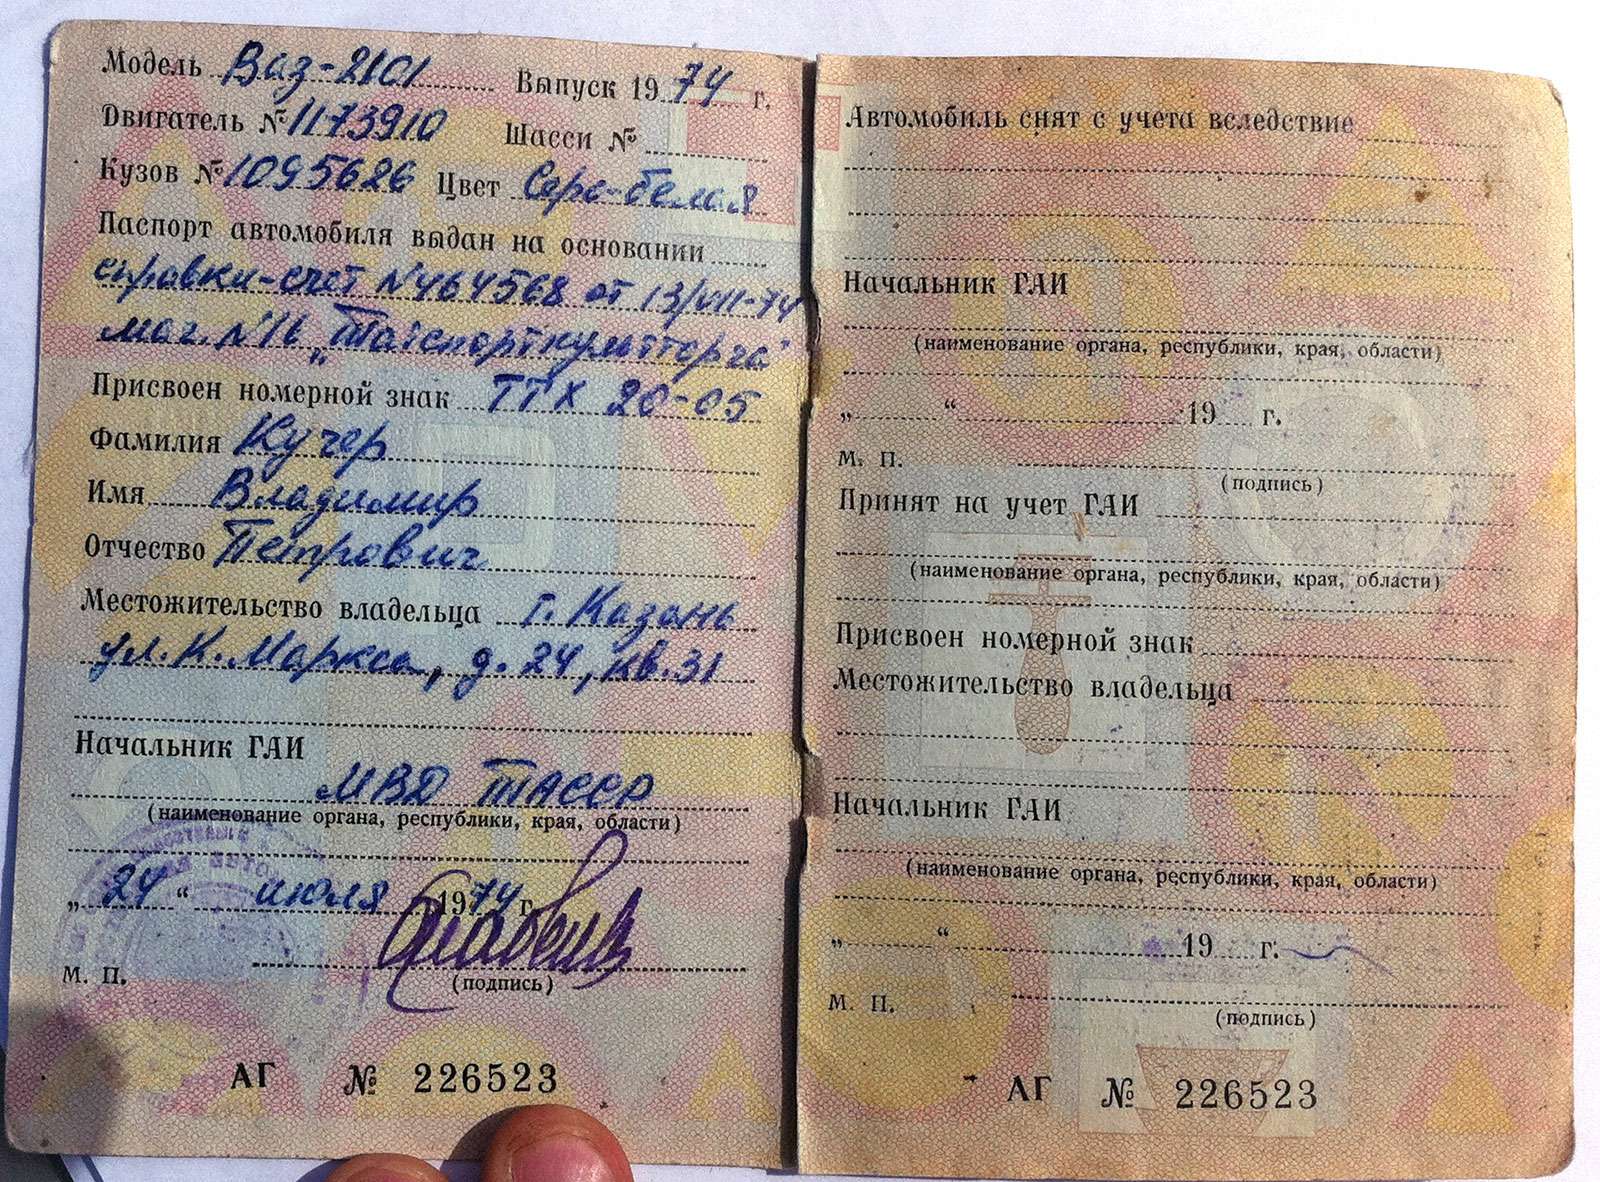 Модель Ваз-2101 Выпуск 1974 г.
Двигатель № 1173910 Шасси №
Кузов № 1095626 Цвет Серо-белая
Паспорт автомобиля выдан на основании
справки-счет №464568 от 13/VII-74
маг. №16 „Татспорткультторга"
Присвоен номерной знак ТТХ 20-05
Фамилия Кучер
Имя Владимир
Отчество Петрович
Местожительство владельца г. Казань
ул. К. Маркса, д. 24, кв. 31
Начальник ГАИ
МВД ТАССР
(наименование органа, республики, края, области)
„24“ июля 1974 г.
М. П.
(подпись)
АГ № 226523
Автомобиль снят с учета вследствие
Начальник ГАИ
(наименование органа, республики, края, области)
„ “ 19 г.
М. П.
(подпись)
Принят на учет ГАИ
(наименование органа, республики, края, области)
Присвоен номерной знак
Местожительство владельца
Начальник ГАИ
(наименование органа, республики, края, области)
„ “ 19 г.
М. П.
(подпись)
АГ № 226523